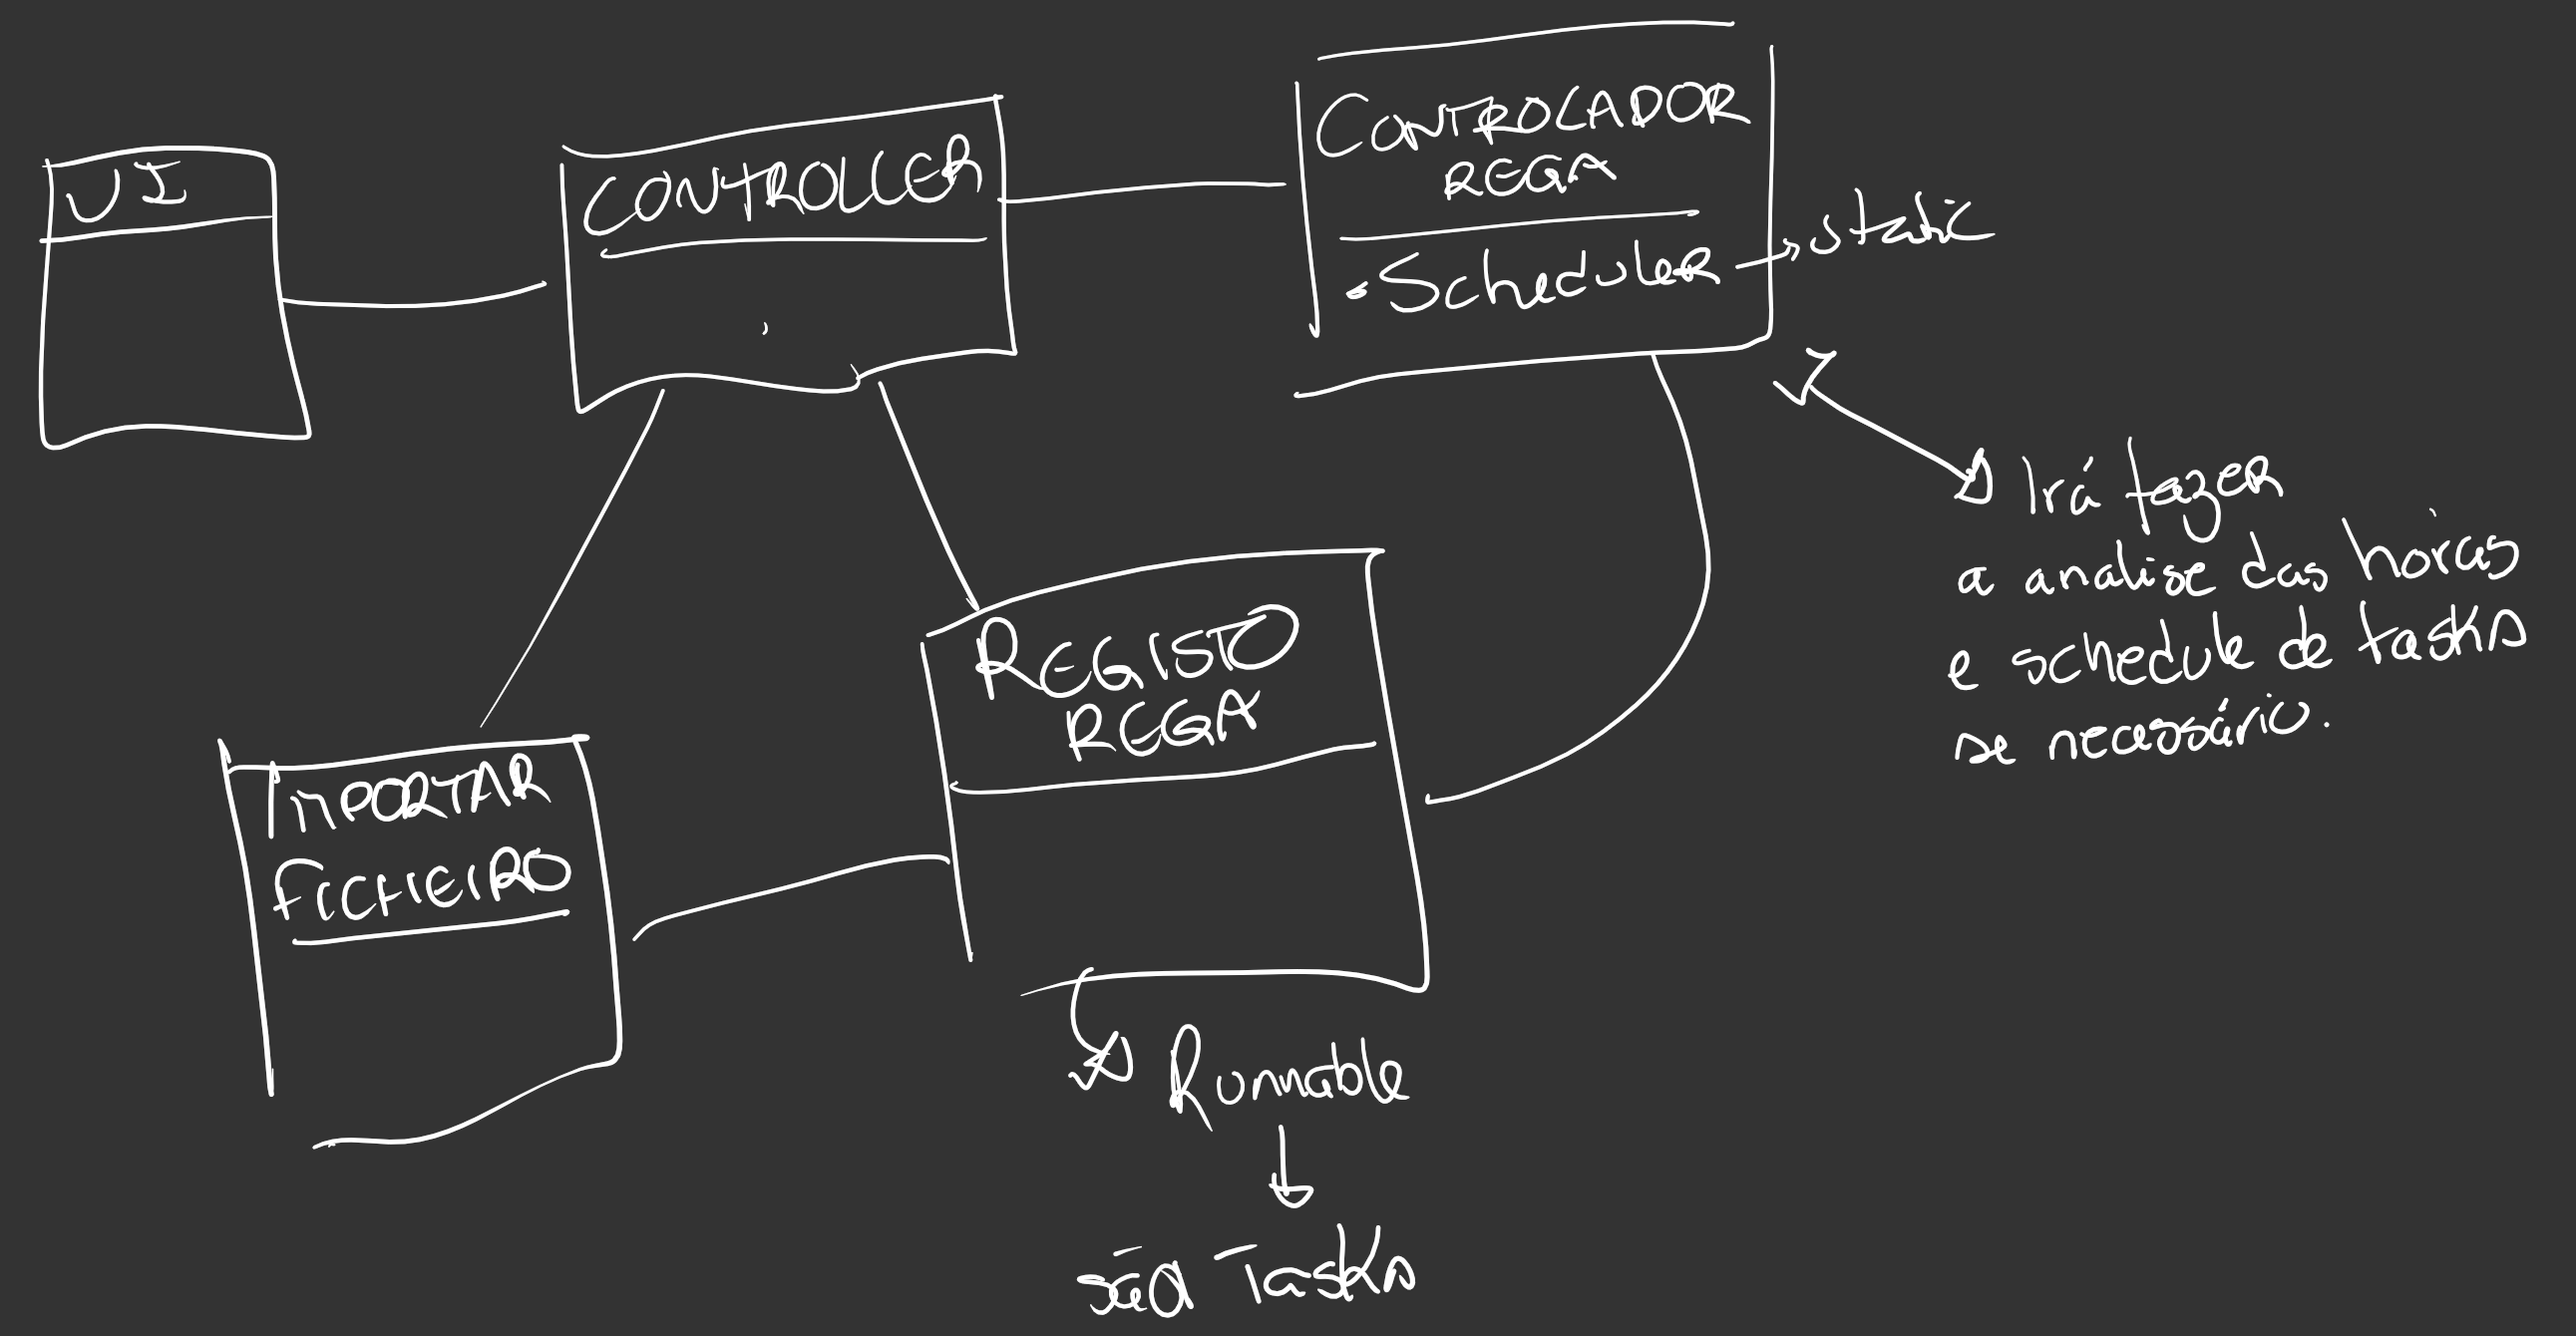 UI
CONTROLLER
CONTROLADOR
REGA
• Scheduler → static
Irá fazer
a analise das horas
e schedule de tasks
se necessário.
REGISTO
REGA
IMPORTAR
FICHEIRO
Runnable
são Tasks